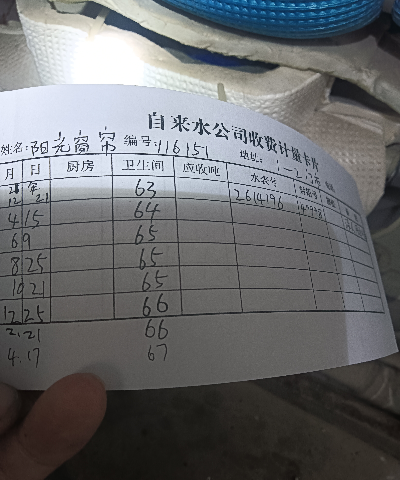 自来水公司收费计量卡片
姓名:阳光窗帘 编号:116151
月 日 厨房 卫生间 应收吨 水表号
12 21 63 2614196
4 15 64
6 9 65
8 25 65
10 21 65
12 25 66
2.21 66
4.17 67